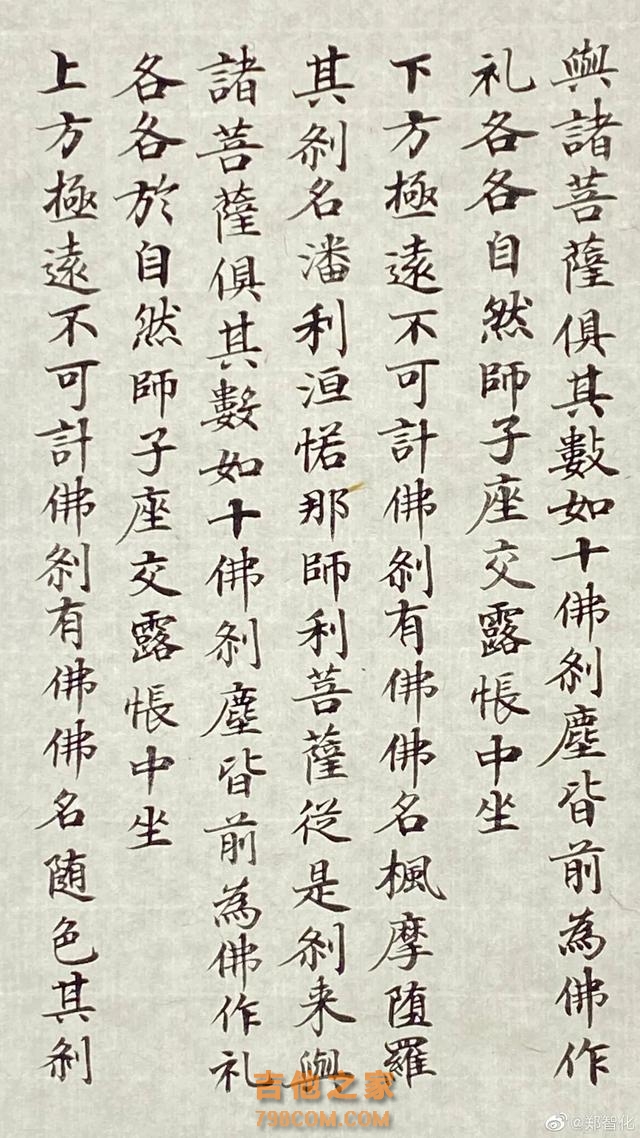 與諸菩薩俱其數如十佛剎塵皆前為佛作
礼各各自然師子座交露帳中坐
下方極遠不可計佛剎有佛佛名楓摩堕羅
其剎名潘利洹惦那師利菩薩從是剎来與
諸菩薩俱其數如十佛剎塵皆前為佛作礼
各各於自然師子座交露帳中坐
上方極遠不可計佛剎有佛佛名随色其剎
吉他之家
798COM.COM
@郑智化